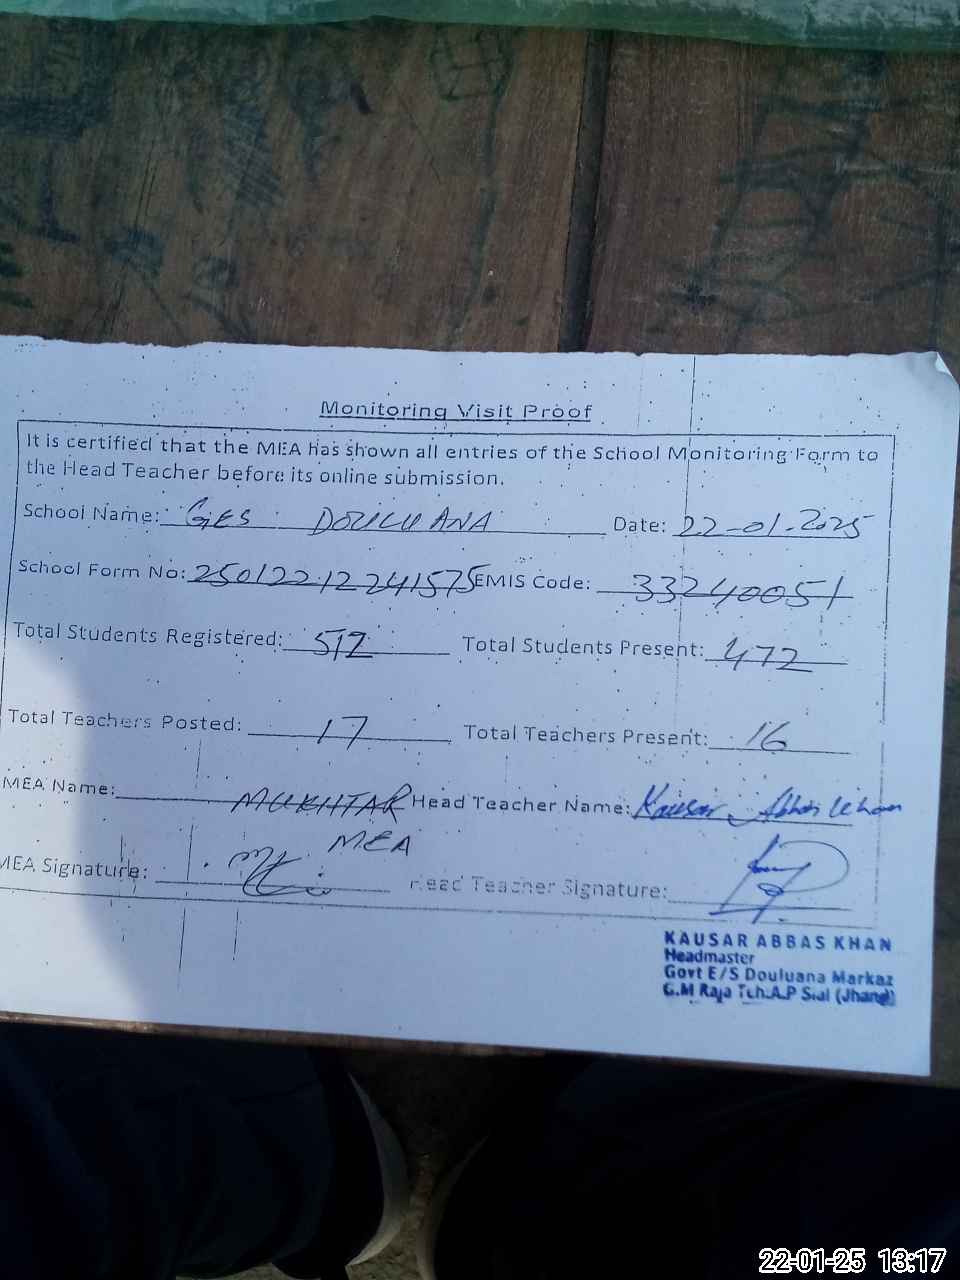 Monitoring Visit Proof
It is certified that the MEA has shown all entries of the School Monitoring Form to
the Head Teacher before its online submission.
School Name: GES DOULUANA Date: 22-01-2025
School Form No: 25012212241575 EMIS Code: 33240051
Total Students Registered: 512 Total Students Present: 472
Total Teachers Posted: 17 Total Teachers Present: 16
MEA Name: MUKHTAR Head Teacher Name: Kausar Abbas Khan
MEA
MEA Signature: Head Teacher Signature:
KAUSAR ABBAS KHAN
Headmaster
Govt E/S Douluana Markaz
G.M Raja Teh:A.P Sial (Jhang)
22-01-25 13:17